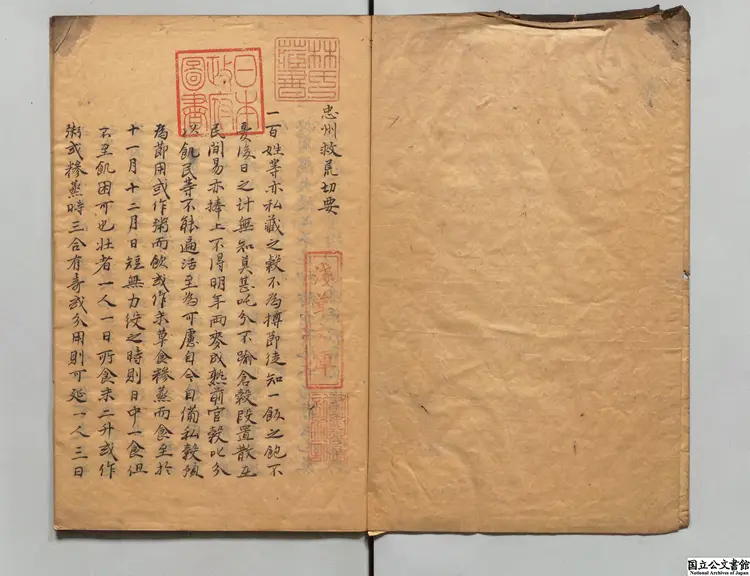 忠州救荒切要
一百姓等亦私藏之穀不為撙節徒知一飯之飽不
憂後日之計無知莫甚叱分不喩倉穀段置散在
民間易亦捧上不得明年両麥成熟前官穀叱分
以飢民等不能遍活至為可慮自今自備私穀須
為節用或作粥而飲或作末草食糝蒸而食至於
十一月十二月日短無力役之時則日中一食但
不至飢困可也壯者一人一日所食米二升或作
粥或糝蒸時三合有奇或分用則可延一人三日
林氏
藏書
日本
政府
圖書
淺草文庫
国立公文書館
National Archives of Japan